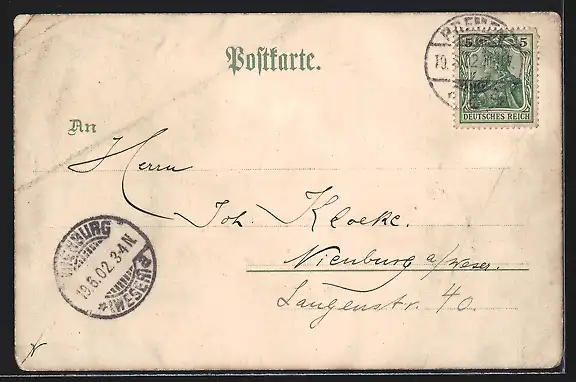 Postkarte.
5 5
DEUTSCHES REICH
19.6.02
An
Herrn
Joh. Kloeke.
Nienburg a/Weser.
Langenstr. 40
NIENBURG
19.6.02. 3-4 N.
* (WESER) a